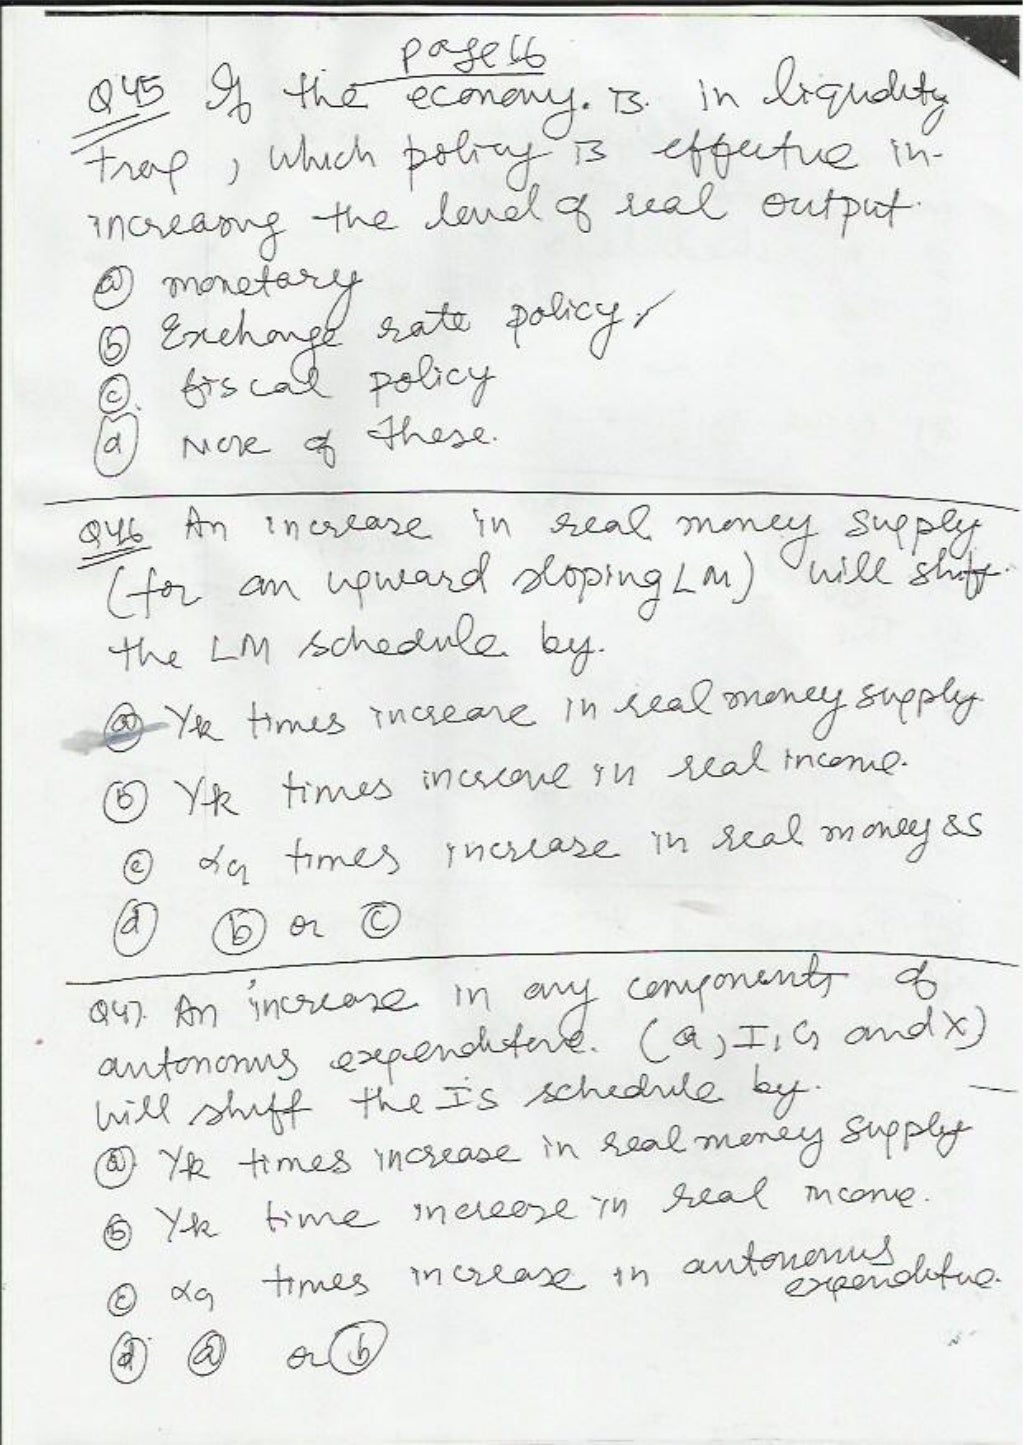 page 16
Q45 If the economy. is in liqudity
trap, which policy is effective in-
increasing the level of real output.
(a) monetary
(b) Exchange rate policy,
(c) fiscal policy
(d) None of these.
Q46 An increase in real money supply
(for an upward sloping LM) will shift
the LM schedule by.
(a) Yk times increase in real money supply
(b) Yk times increase in real income.
(c) αG times increase in real money SS
(d) (b) or (c)
Q47. An increase in any components of
autonomus expenditure. (a, I, G and X)
will shiff the IS schedule by.
(a) Yk times increase in real money supply
(b) Yk time increase in real income.
(c) αG times increase in autonomus
expenditue.
(d) (a) or (b)